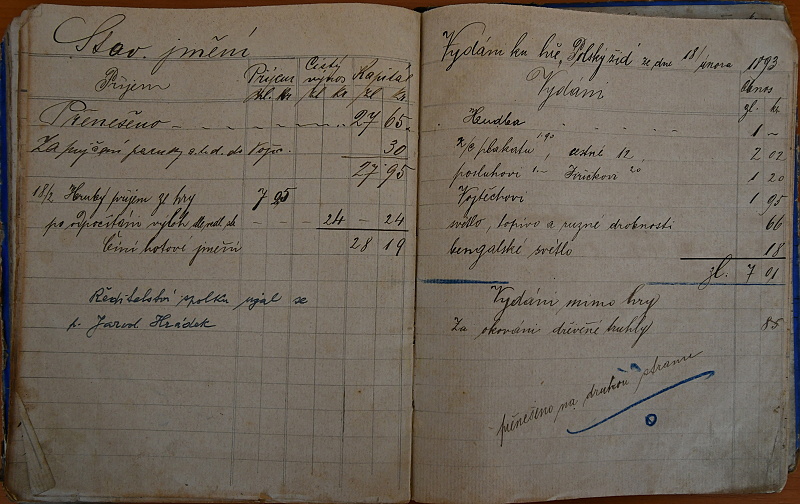 Stav. jmění
Příjem Příjem Čistý výnos Kapitál
zl. kr zl kr zl kr
Přenešeno - - - - - - 27 65
Za půjčení paruky a.t.d. do Vojic. 30
27 95
18/2 Hrubý příjem ze hry 7 25
po odpočítání výloh - - - 24 - 24
Činí hotové jmění 28 19
Ředitelství spolku ujal se
p. Jarosl Hrádek
Vydání ku hře, Polský žid ze dne 18/února 1893
Vydání Obnos
zl. kr.
Hudba 1 —
plakátů 1.90, cestné 12, 2 02
posluhovi 1 — Jiříčkovi 20 1 20
Vojtěchovi 1 95
světlo, topivo a různé drobnosti 66
bengalské světlo 18
zl. 7 01
Vydání mimo hry
Za okování dřevěné truhly 85
přenešeno na druhou stranu